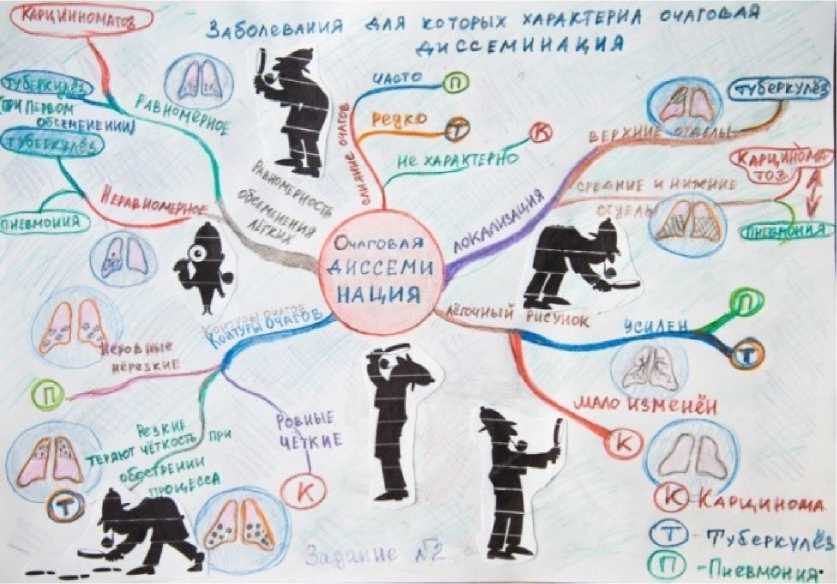 ЗАБОЛЕВАНИЯ ДЛЯ КОТОРЫХ ХАРАКТЕРНА ОЧАГОВАЯ
ДИССЕМИНАЦИЯ
КАРЦИННОМАТОЗ
ТУБЕРКУЛЁЗ
(ПРИ ПЕРВОМ
ОБСЕМЕНЕНИИ)
РАВНОМЕРНОЕ
ТУБЕРКУЛЁЗ
НЕРАВНОМЕРНОЕ
ПНЕВМОНИЯ
РАВНОМЕРНОСТЬ
ОБСЕМЕНЕНИЯ
ЛЕГКИХ
СЛИЯНИЕ ОЧАГОВ
ЧАСТО
П
РЕДКО
Т
НЕ ХАРАКТЕРНО
К
ЛОКАЛИЗАЦИЯ
ВЕРХНИЕ ОТДЕЛЫ
ТУБЕРКУЛЁЗ
СРЕДНИЕ И НИЖНИЕ
ОТДЕЛЫ
КАРЦИНОМА
ТОЗ
ПНЕВМОНИЯ
ОЧАГОВАЯ
ДИССЕМИ
НАЦИЯ
ЛЁГОЧНЫЙ РИСУНОК
УСИЛЕН
П
Т
МАЛО ИЗМЕНЁН
К
КОНТУРЫ ОЧАГОВ
КОНТУРЫ ОЧАГОВ
НЕРОВНЫЕ
НЕРЕЗКИЕ
П
РЕЗКИЕ
ТЕРЯЮТ ЧЁТКОСТЬ ПРИ
ОБОСТРЕНИИ
ПРОЦЕССА
Т
РОВНЫЕ
ЧЕТКИЕ
К
Задание №2
К КАРЦИНОМА
Т - ТУБЕРКУЛЁЗ
П - ПНЕВМОНИЯ.